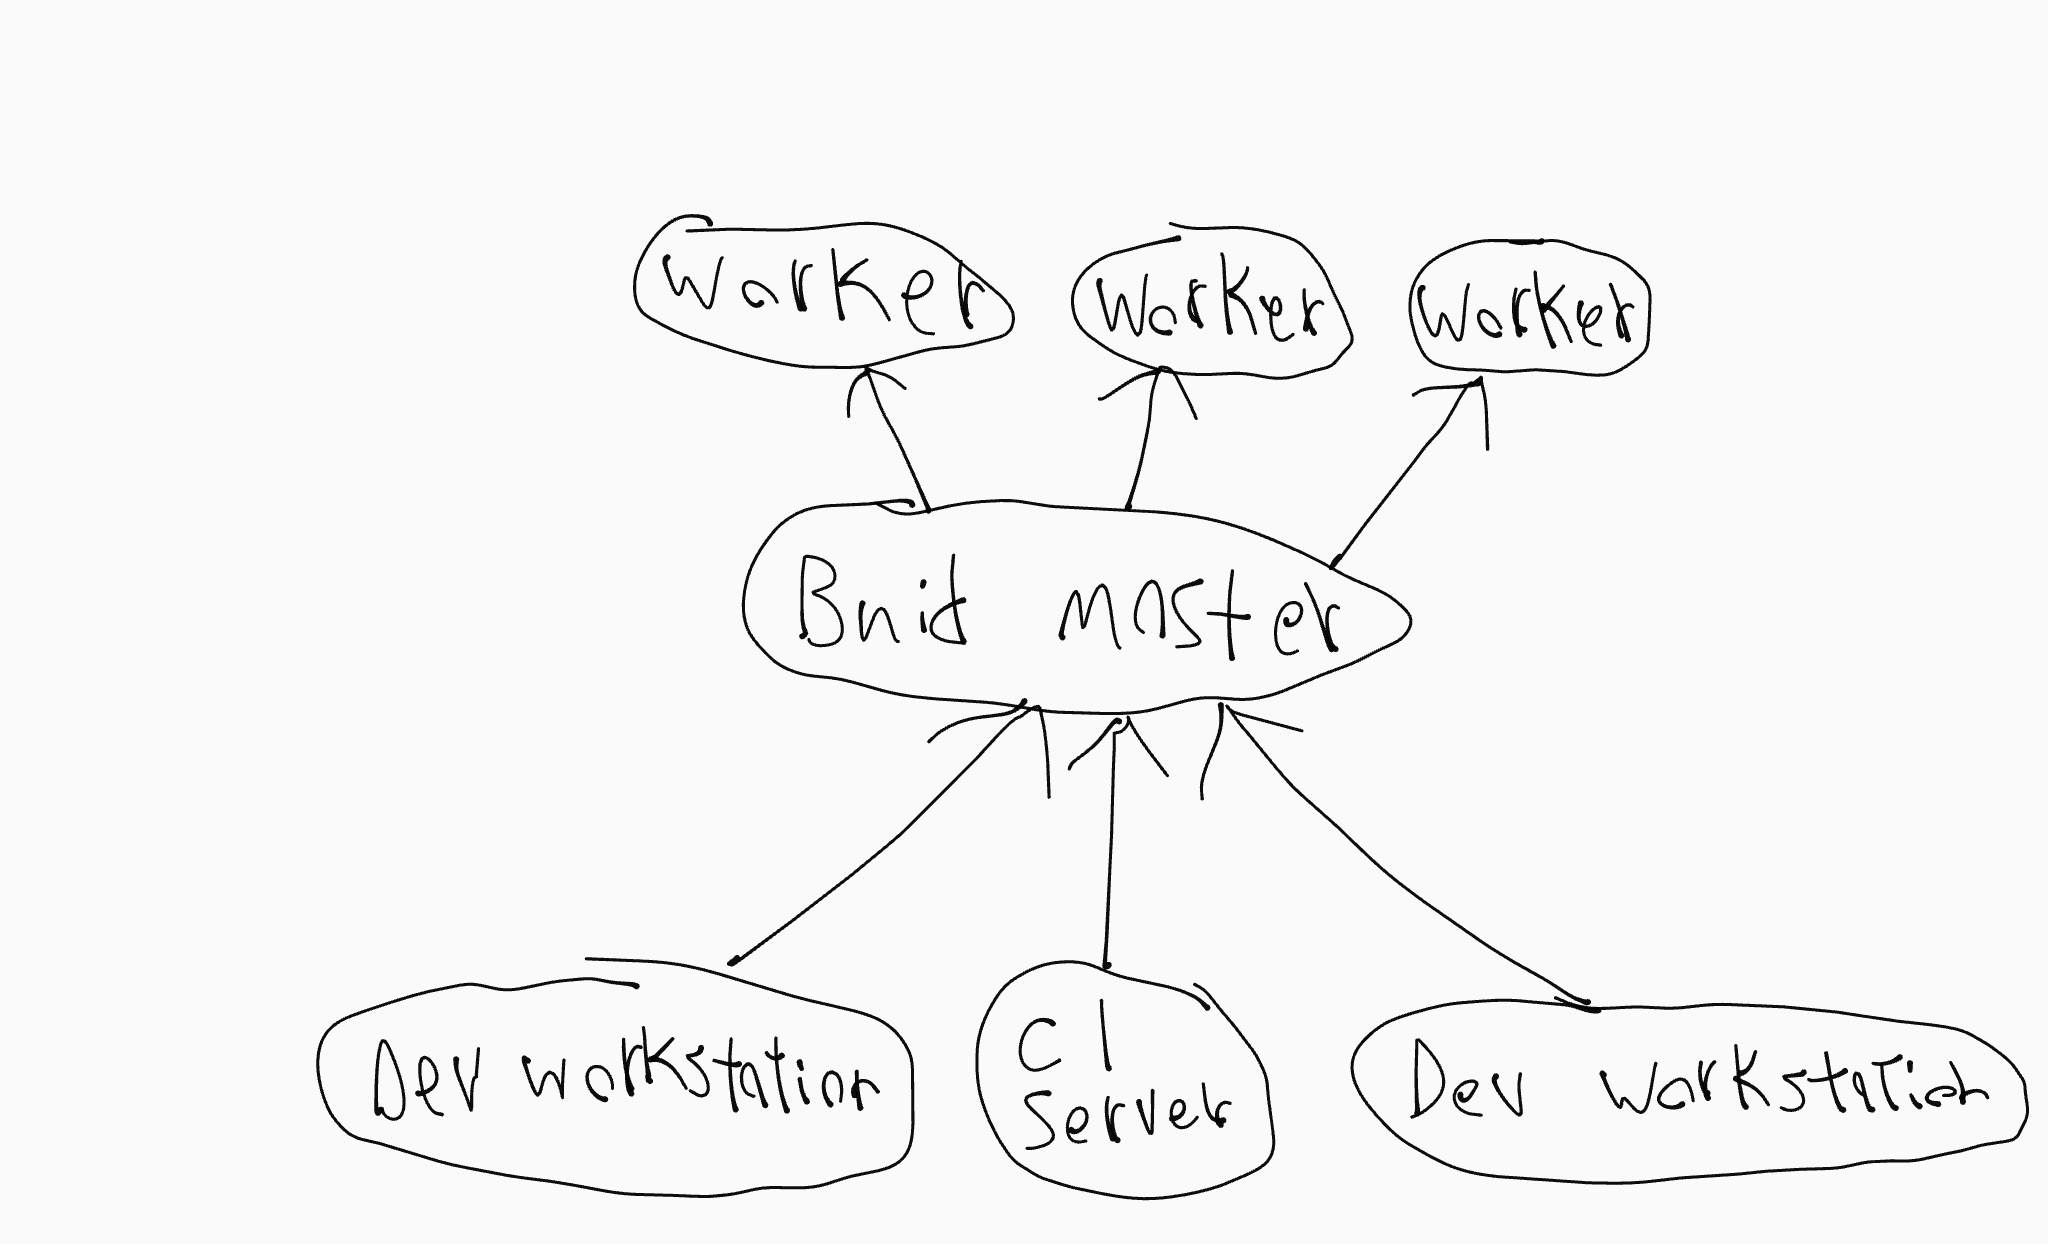 Worker Worker Worker
Bnid master
Dev workstation
CI
Server
Dev workstation